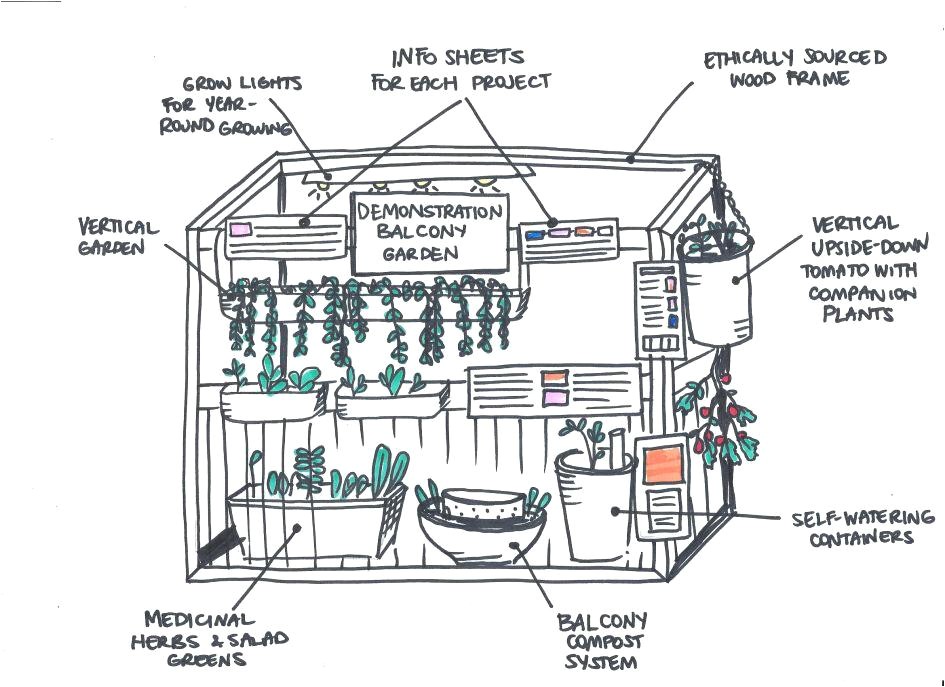 INFO SHEETS
FOR EACH PROJECT
ETHICALLY SOURCED
WOOD FRAME
GROW LIGHTS
FOR YEAR-
ROUND GROWING
DEMONSTRATION
BALCONY
GARDEN
VERTICAL
GARDEN
VERTICAL
UPSIDE-DOWN
TOMATO WITH
COMPANION
PLANTS
SELF-WATERING
CONTAINERS
MEDICINAL
HERBS & SALAD
GREENS
BALCONY
COMPOST
SYSTEM